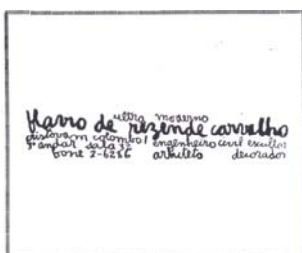 ultra moderno
flavio de rezende carvalho
cristovam colombo 1 engenheiro civil escultor
3º andar sala 32
fone 2-6286 arkiteto decorador